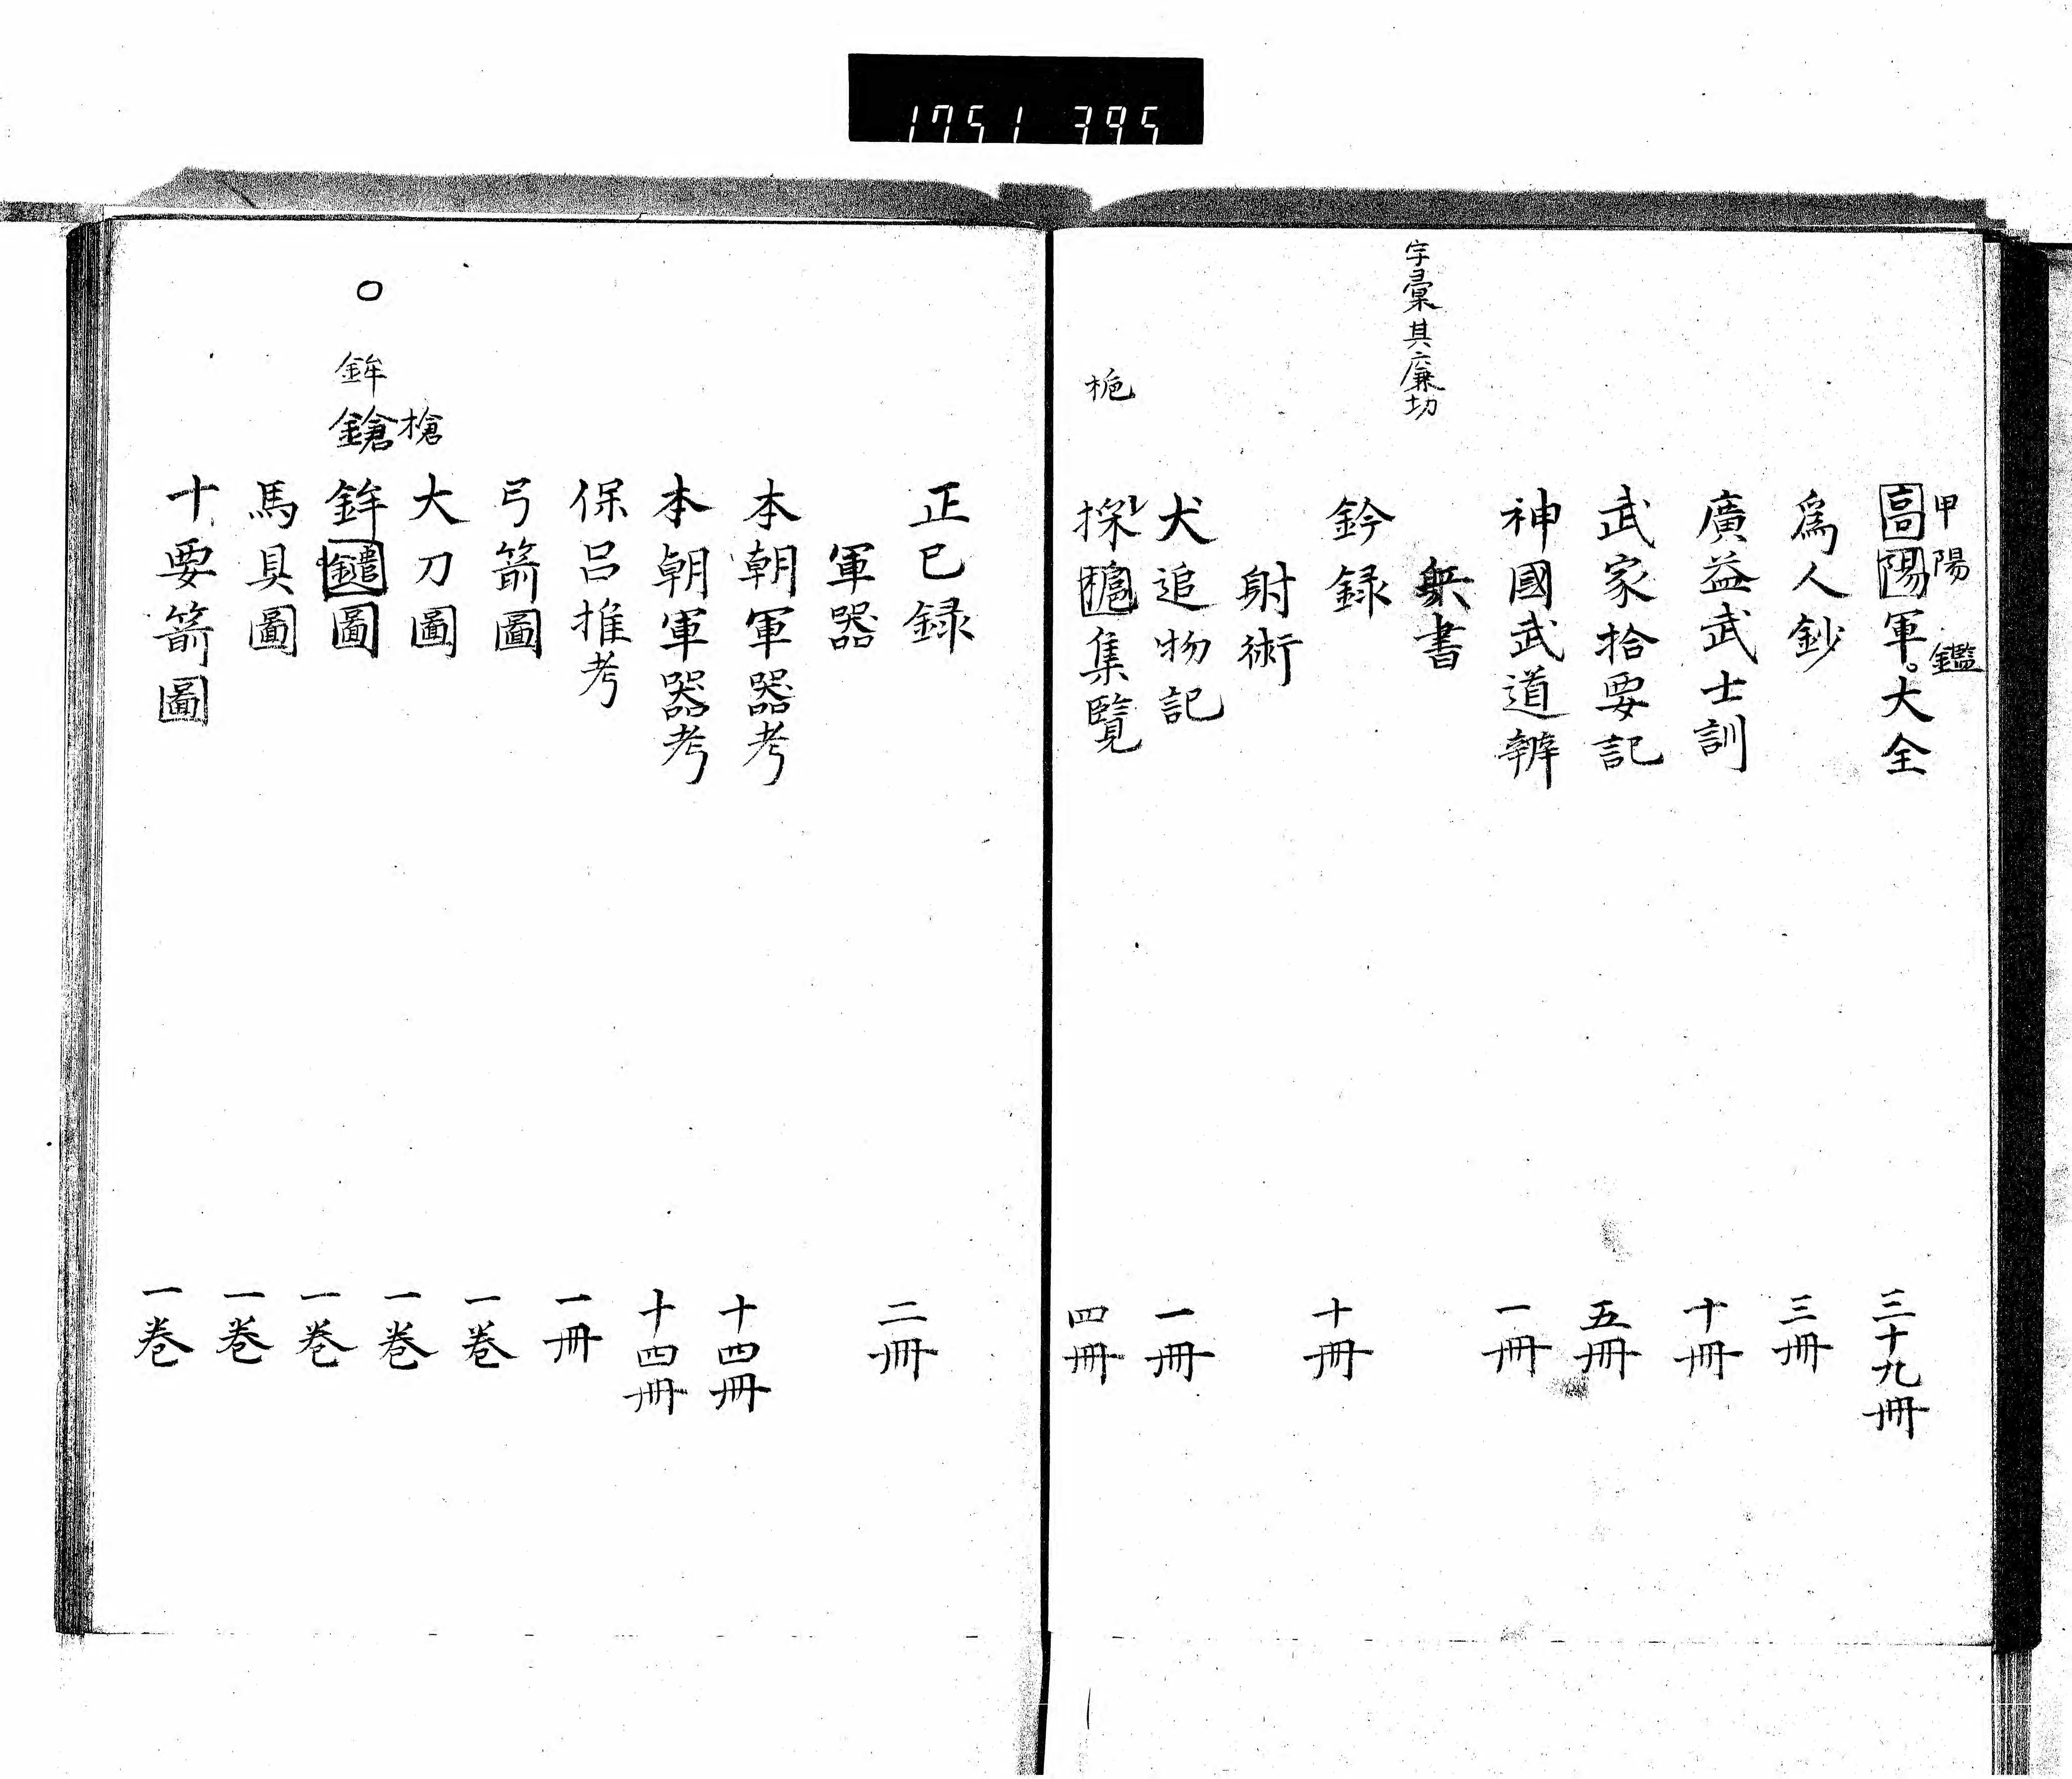 1751 395
甲陽　鑑
高陽軍。大全　三十九冊
爲人鈔　三冊
廣益武士訓　十冊
武家拾要記　五冊
神國武道辨　一冊
兵書
字彙其廉切
鈐録　十冊
射術
犬追物記　一冊
桅
採集覽　四冊
正已録　二冊
軍器
本朝軍器考　十四冊
本朝軍器考　十四冊
保呂推考　一冊
弓箭圖　一巻
大刀圖　一巻
○
槍
鉾鎗
鉾圖　一巻
馬具圖　一巻
十要箭圖　一巻